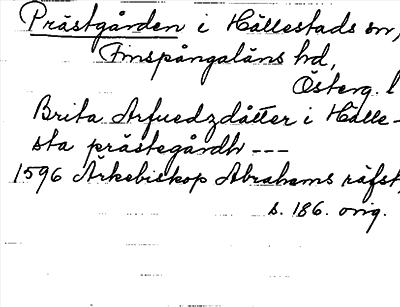 Prästgården i Hällestads sn,
Finspångaläns hd,
Österg. l
Brita Arfuedzdåtter i Hälle-
sta prästegårdh ---
1596 Ärkebiskop Abrahams räfst,
s. 186. orig.